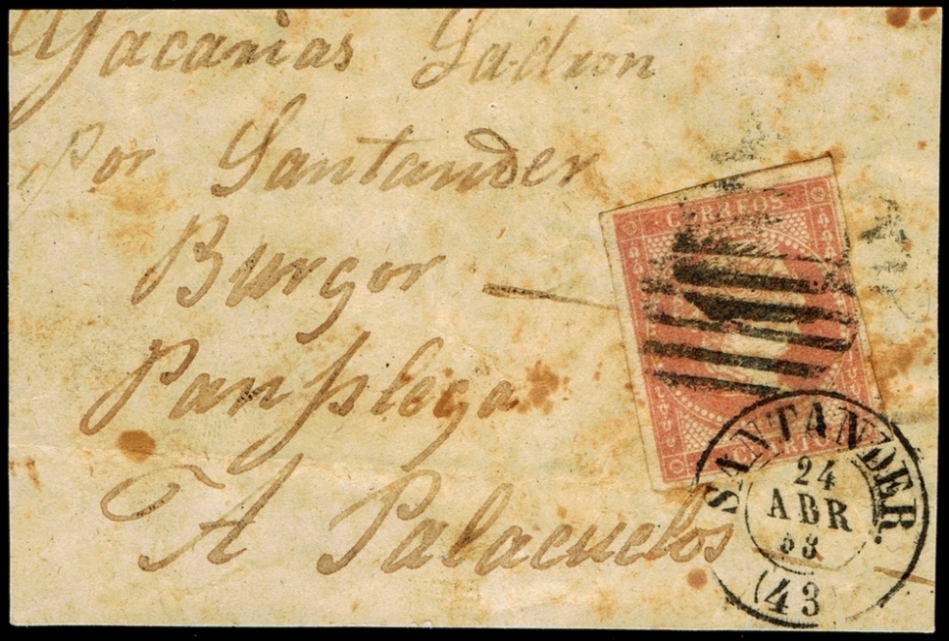 Yacarias Ladron
por Santander
Burgos
Panpliega
A Palacuelos
CORREOS
SANTANDER.
24
ABR
58
(43